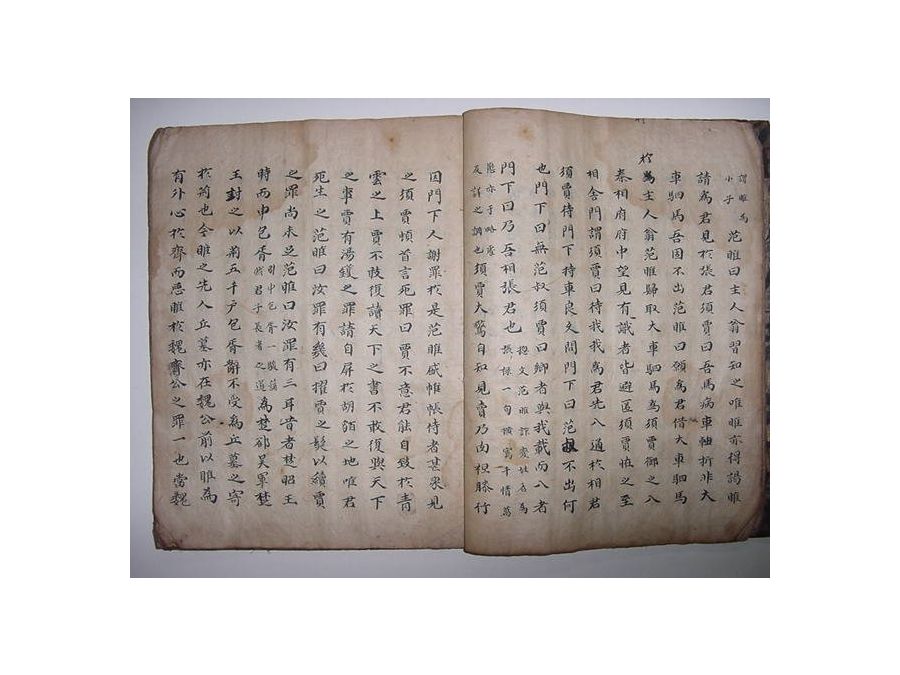 謂睢為
小子
范睢曰主人翁習知之唯睢亦得謁睢
請為君見於張君須賈曰吾馬病車軸折非大
車駟馬吾固不出范睢曰願為君借大車駟馬
於為主人翁范睢歸取大車駟馬為須賈御之入
秦相府府中望見有識者皆避匿須賈怪之至
相舍門謂須賈曰待我我為君先入通於相君
須賈待門下持車良久問門下曰范叔不出何
也門下曰無范叔須賈曰鄉者與我載而入者
門下曰乃吾相張君也
文范睢詐變姓名為
張祿一句橫寫千情萬
態亦于略
反詳之調也
須賈大驚自知見賣乃肉袒膝行
因門下人謝罪於是范睢盛帷帳侍者甚眾見
之須賈頓首言死罪曰賈不意君能自致於青
雲之上賈不敢復讀天下之書不敢復與天下
之事賈有湯鑊之罪請自屏於胡貉之地唯君
死生之范睢曰汝罪有幾曰擢賈之髮以續賈
之罪尚未足范睢曰汝罪有三耳昔者楚昭王
時而申包胥
引申包胥一段藹
然君子長者之道
為楚卻吳軍楚
王封之以荊五千戶包胥辭不受為丘墓之寄
於荊也今睢之先人丘墓亦在魏公前以睢為
有外心於齊而惡睢於魏齊公之罪一也當魏